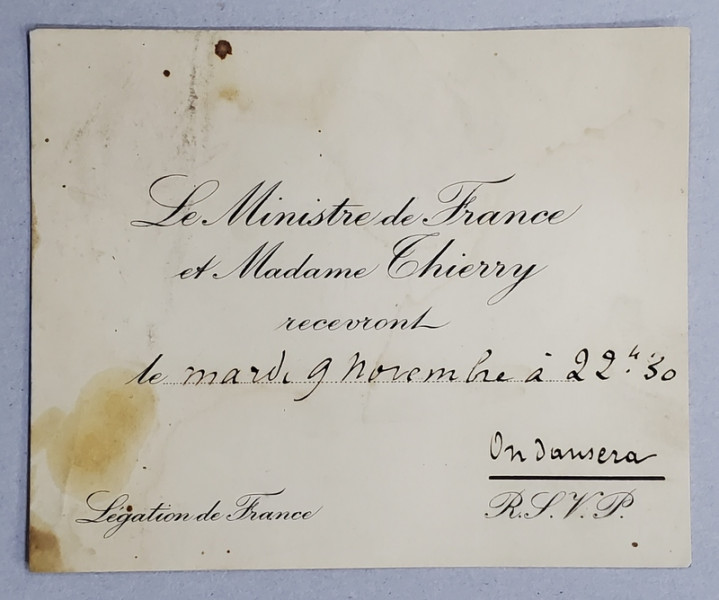 Le Ministre de France
et Madame Thierry
recevront
le mardi 9 Novembre à 22h.30
On dansera
Légation de France
R.S.V.P.